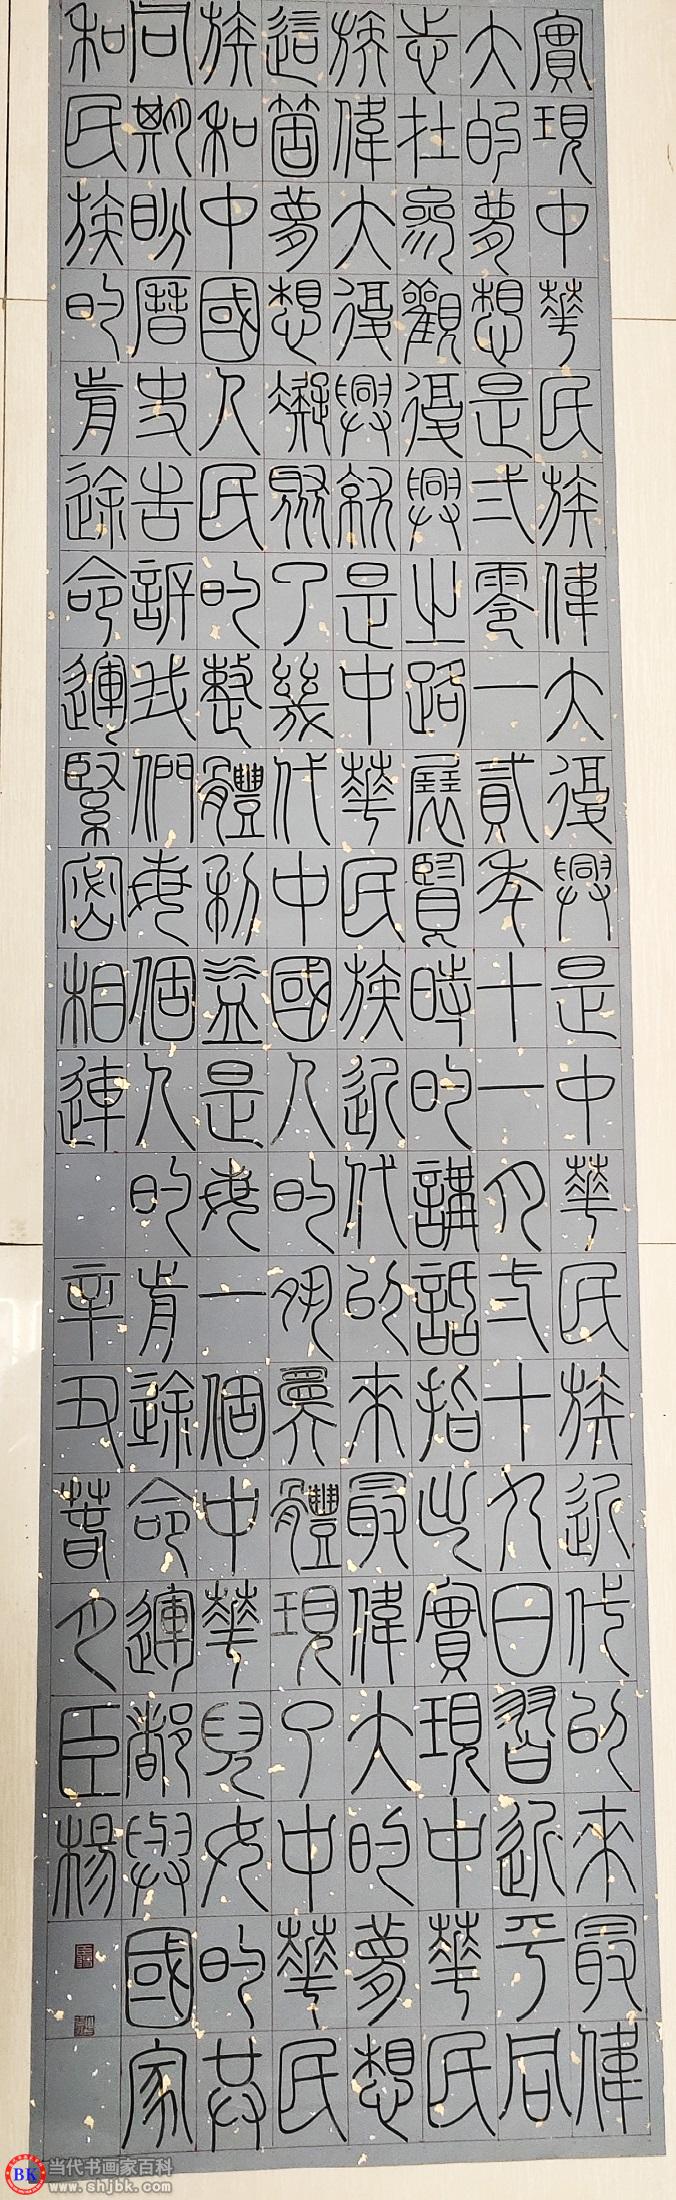 實現中華民族偉大復興是中華民族近代以來最偉
大的夢想是弍零一貳年十一月弍十九日習近平同
志在參觀復興之路展覽時的講話指出實現中華民
族偉大復興就是中華民族近代以來最偉大的夢想
這箇夢想凝聚了幾代中國人的夙願體現了中華民
族和中國人民的整體利益是每一個中華兒女的共
同期盼曆史告訴我們每個人的前途命運都與國家
和民族的前途命運緊密相連 辛丑萅月臣楊
BK 当代书画家百科
www.shjbk.com